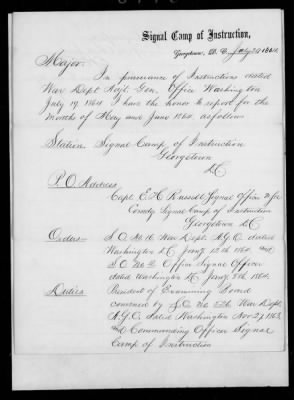 Signal Camp of Instruction,
Georgetown, D. C. July 20 1864
Major:
In pursuance of Instructions dated
War Dept Adjt Gen. Office Washington
July 19 1864 I have the honor to report for the
months of May and June 1864 as follows
Station Signal Camp of Instruction
Georgetown
D.C
P. O. Address
Capt E. H. Russell Signal Officer
Comdg Signal Camp of Instruction
Georgetown D.C
Orders S. O. No. 16 War Dept. A.G.O. dated
Washington D.C Jany 12th 1864 and
S O No Office Signal Officer
dated Washington D.C Jany 8th 1864.
Duties President of Examining Board
convened by S.O. No War Dept.
A.G.O. dated Washington Nov 27 1863,
and Commanding Officer Signal
Camp of Instruction